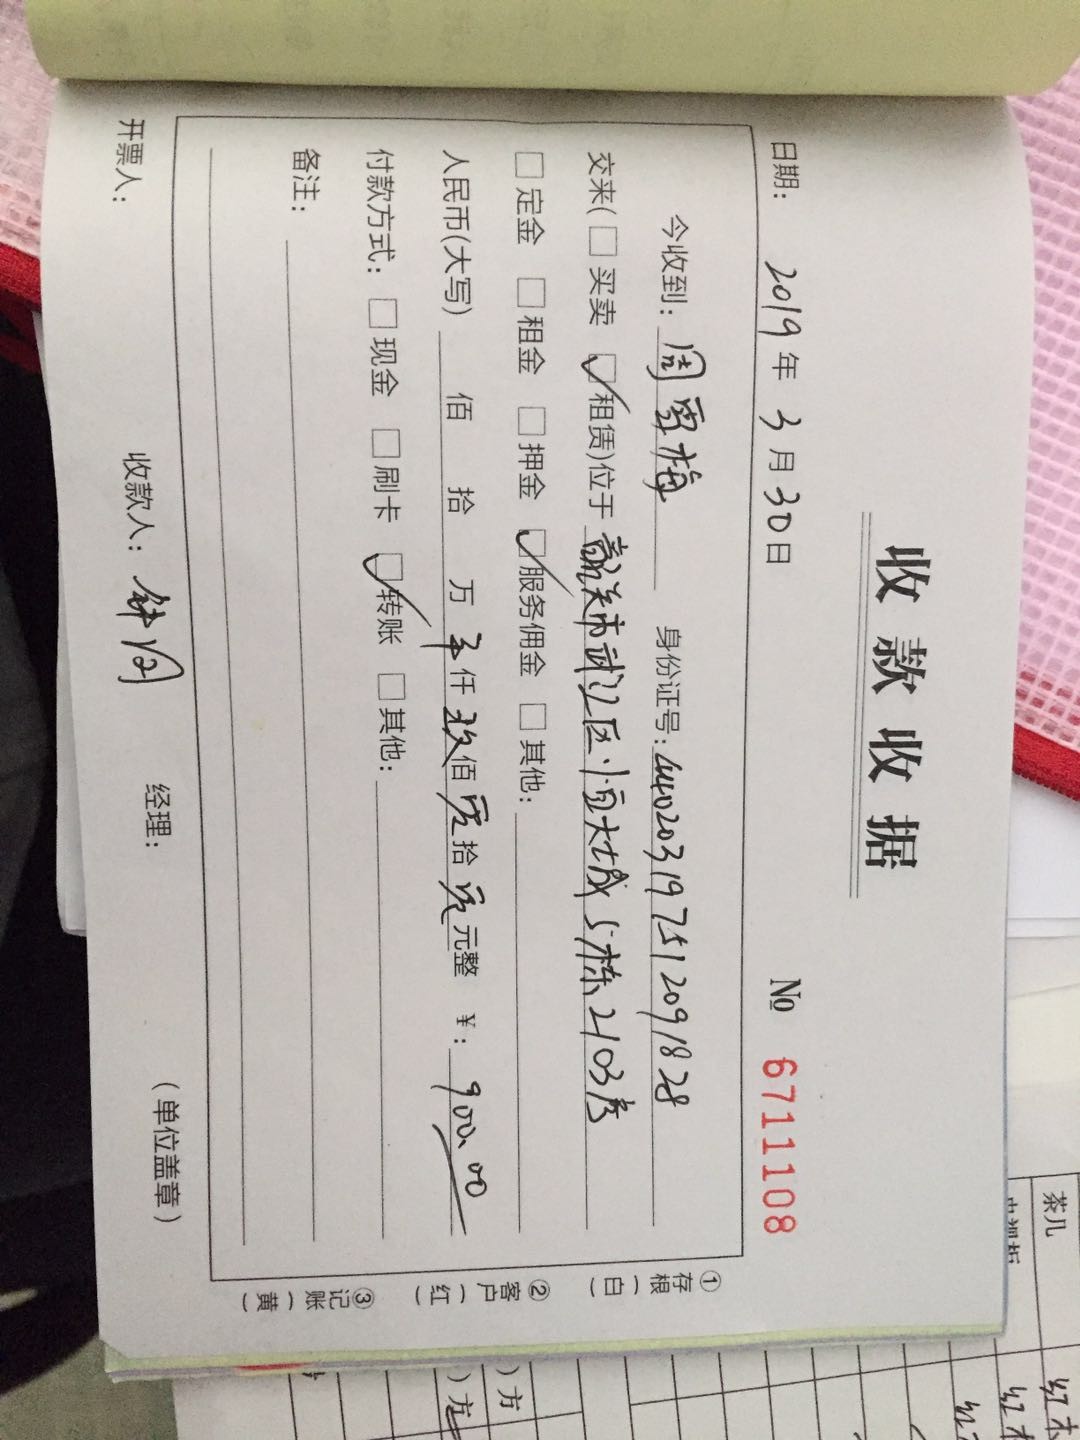 收款收据
№ 6711108
日期: 2019年3月30日
今收到: 周雪梅 身份证号: 440203197512091828
交来(□买卖 ☑租赁)位于 韶关市武江区恒大城5栋2103房
□定金 □租金 □押金 ☑服务佣金 □其他:
人民币(大写) 佰 拾 万 零仟玖佰零拾零元整 ¥: 900.00
付款方式: □现金 □刷卡 ☑转账 □其他:
备注:
开票人: 收款人: 经理: (单位盖章)
①存根(白) ②客户(红) ③记账(黄)
茶几